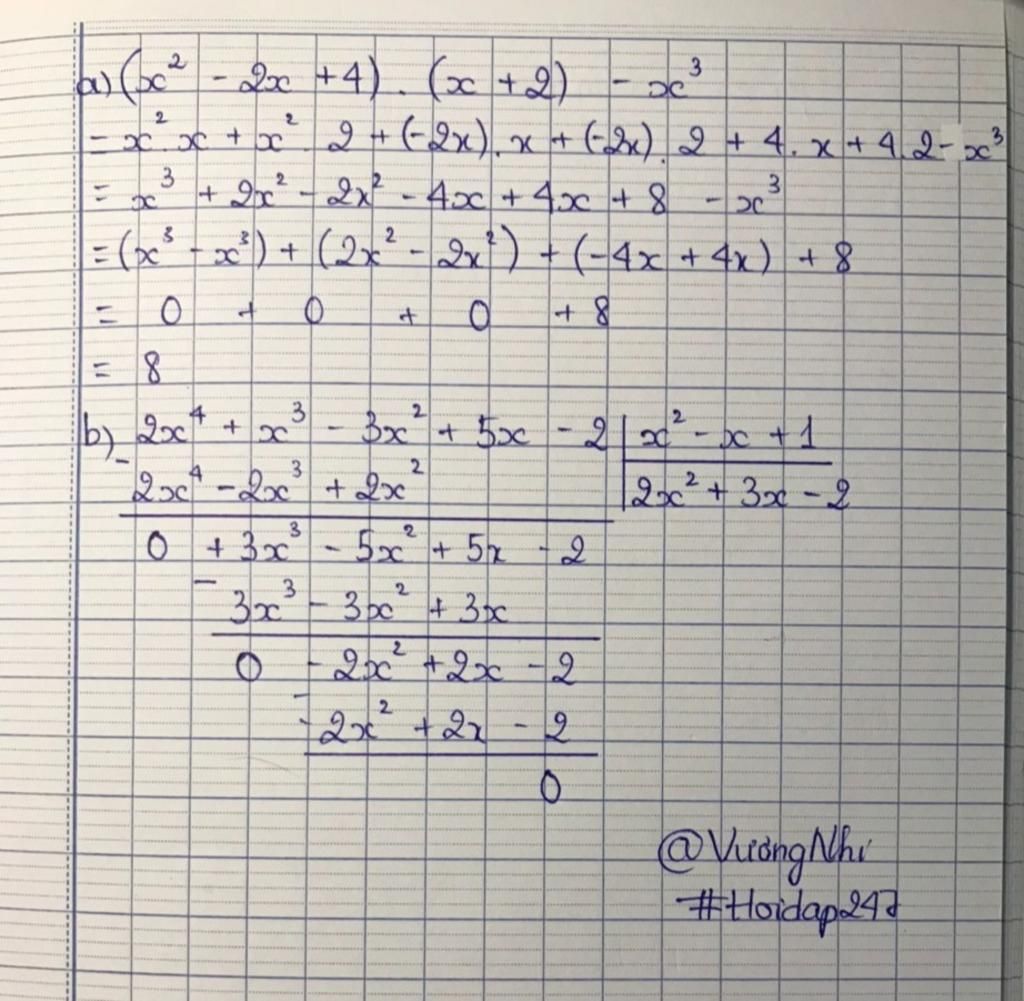 a) (x² - 2x + 4) . (x + 2) - x³
= x². x + x² . 2 + (-2x). x + (-2x). 2 + 4. x + 4. 2 - x³
= x³ + 2x² - 2x² - 4x + 4x + 8 - x³
= (x³ - x³) + (2x² - 2x²) + (-4x + 4x) + 8
= 0 + 0 + 0 + 8
= 8
b) 2x⁴ + x³ - 3x² + 5x - 2 | x² - x + 1
- 2x⁴ - 2x³ + 2x² | 2x² + 3x - 2
0 + 3x³ - 5x² + 5x - 2
- 3x³ - 3x² + 3x
0 - 2x² + 2x - 2
- - 2x² + 2x - 2
0
@VươngNhi
#Hoidap247